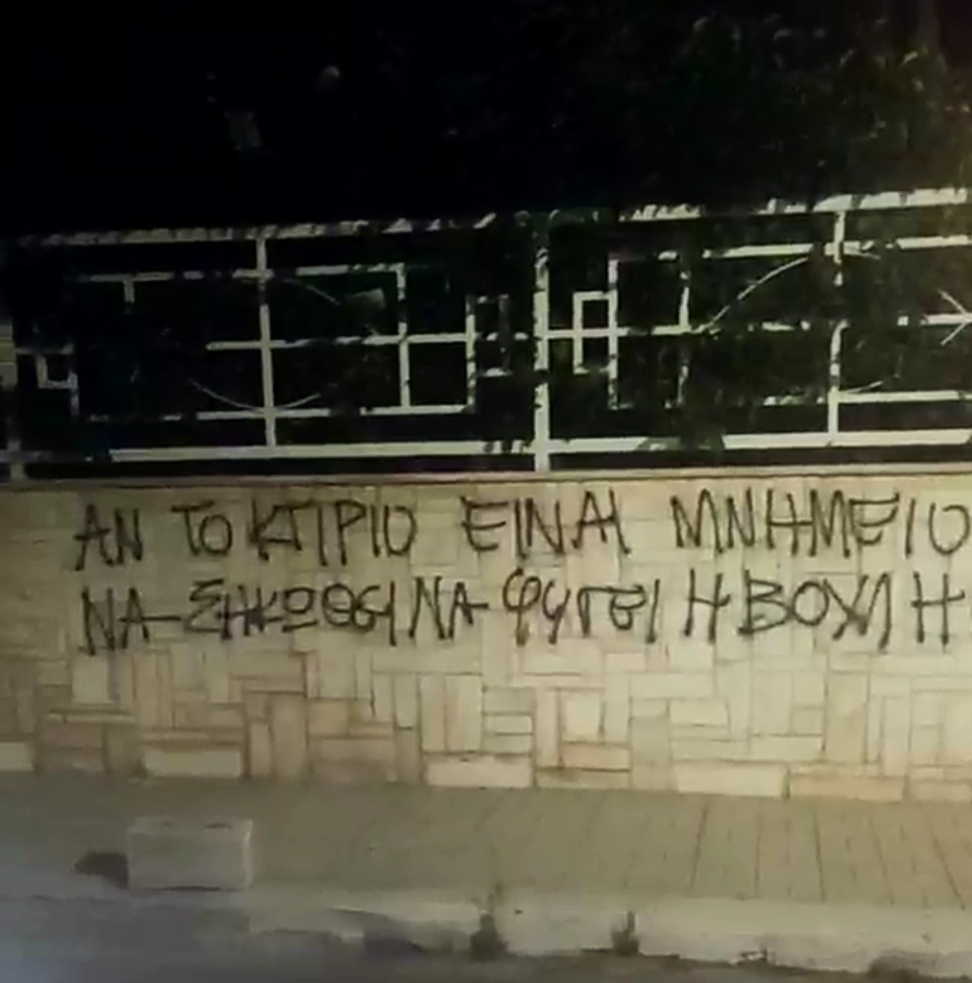 ΑΝ ΤΟ ΚΤΙΡΙΟ ΕΙΝΑΙ ΜΝΗΜΕΙΟ
ΝΑ ΣΗΚΩΘΕΙ ΝΑ ΦΥΓΕΙ Η ΒΟΥΛΗ